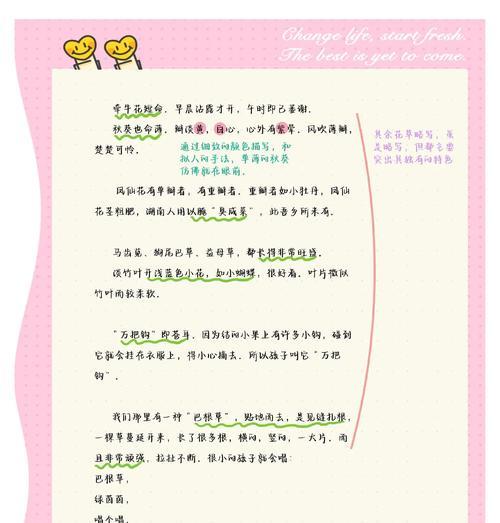 Change life, start fresh.
The best is yet to come.
牵牛花短命。早晨沾露才开，午时即已萎谢。
秋葵也命薄。瓣淡黄，白心，心外有紫晕。风吹薄瓣，
楚楚可怜。
通过细致的颜色描写，和
拟人的手法，单薄的秋葵
仿佛就在眼前。
其余花草略写，虽
是略写，但都右要
突出其独有的特色
凤仙花有单瓣者，有重瓣者。重瓣者如小牡丹，凤仙
花茎粗肥，湖南人用以腌“臭咸菜”，此吾乡所未有。
马齿苋、狗尾巴草、益母草，都长得非常旺盛。
淡竹叶开浅蓝色小花，如小蝴蝶，很好看。叶片微似
竹叶而较柔软。
“万把钩”即苍耳。因为结的小果上有许多小钩，碰到
它就会挂在衣服上，得小心摘去。所以孩子叫它“万把
钩”。
我们那里有一种“巴根草”，贴地而去，是见缝扎根，
一棵草蔓延开来，长了很多根，横的，竖的，一大片。而
且非常顽强，拉扯不断。很小的孩子就会唱：
巴根草，
绿茵茵，
唱个唱，